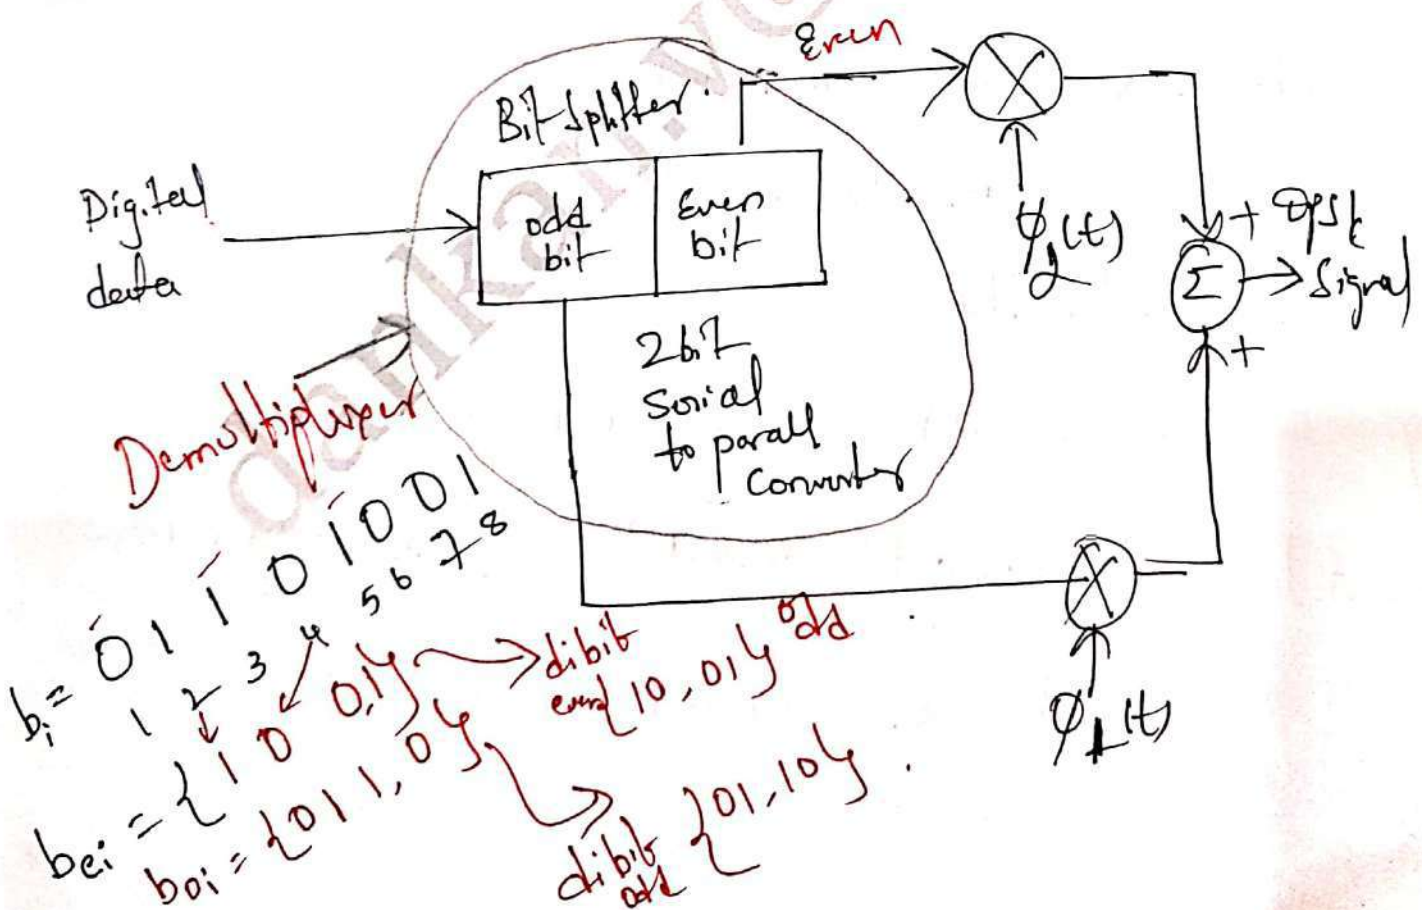 Even
Bit splitter
Digital
data
odd
bit
Even
bit
ϕ2(t)
+ QPSK
Signal
Σ
+
2 bit
Serial
to parall
Converter
Demultiplexer
bi = 0 1 1 0 1 0 0 1
1 2 3 4 5 6 7 8
bei = { 1 0 0,1}
dibit
even{10, 01}
odd
boi = {0 1 1, 0}
dibit
odd {01, 10}
ϕ1(t)